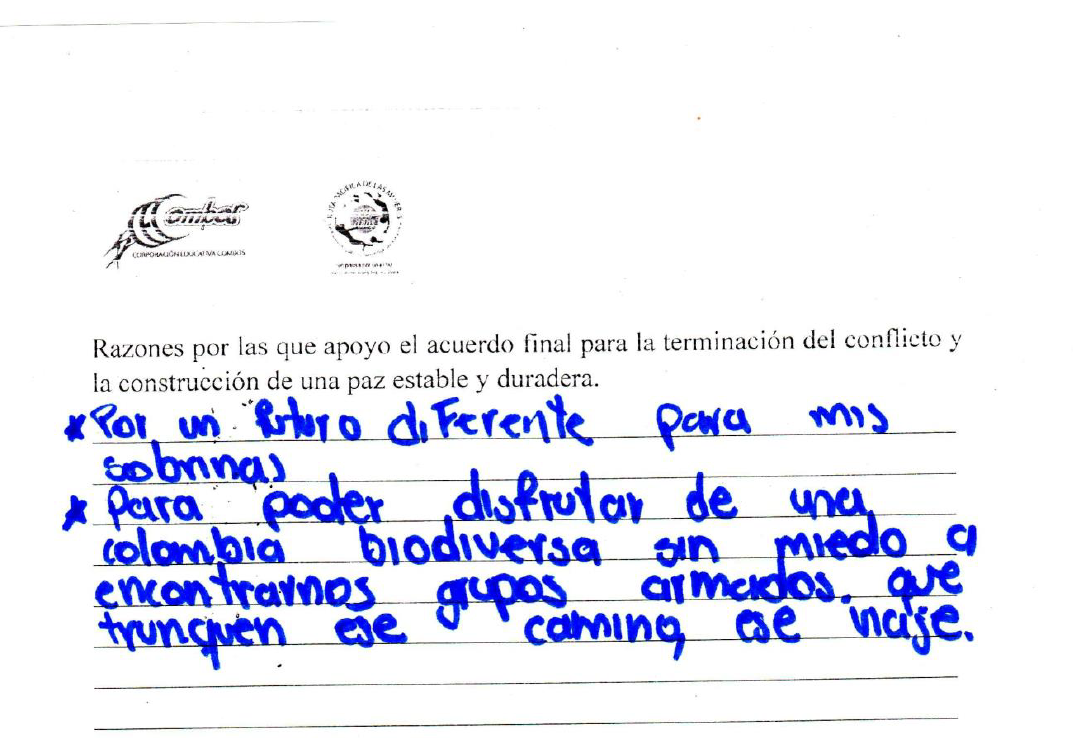 Combos
CORPORACIÓN EDUCATIVA COMBOS
RUTA PACÍFICA DE LAS MUJERES
Razones por las que apoyo el acuerdo final para la terminación del conflicto y
la construcción de una paz estable y duradera.
* Por un futuro diferente para mis
sobrinas
* Para poder disfrutar de una
colombia biodiversa sin miedo a
encontrarnos grupos armados. que
trunquen ese camino, ese viaje.